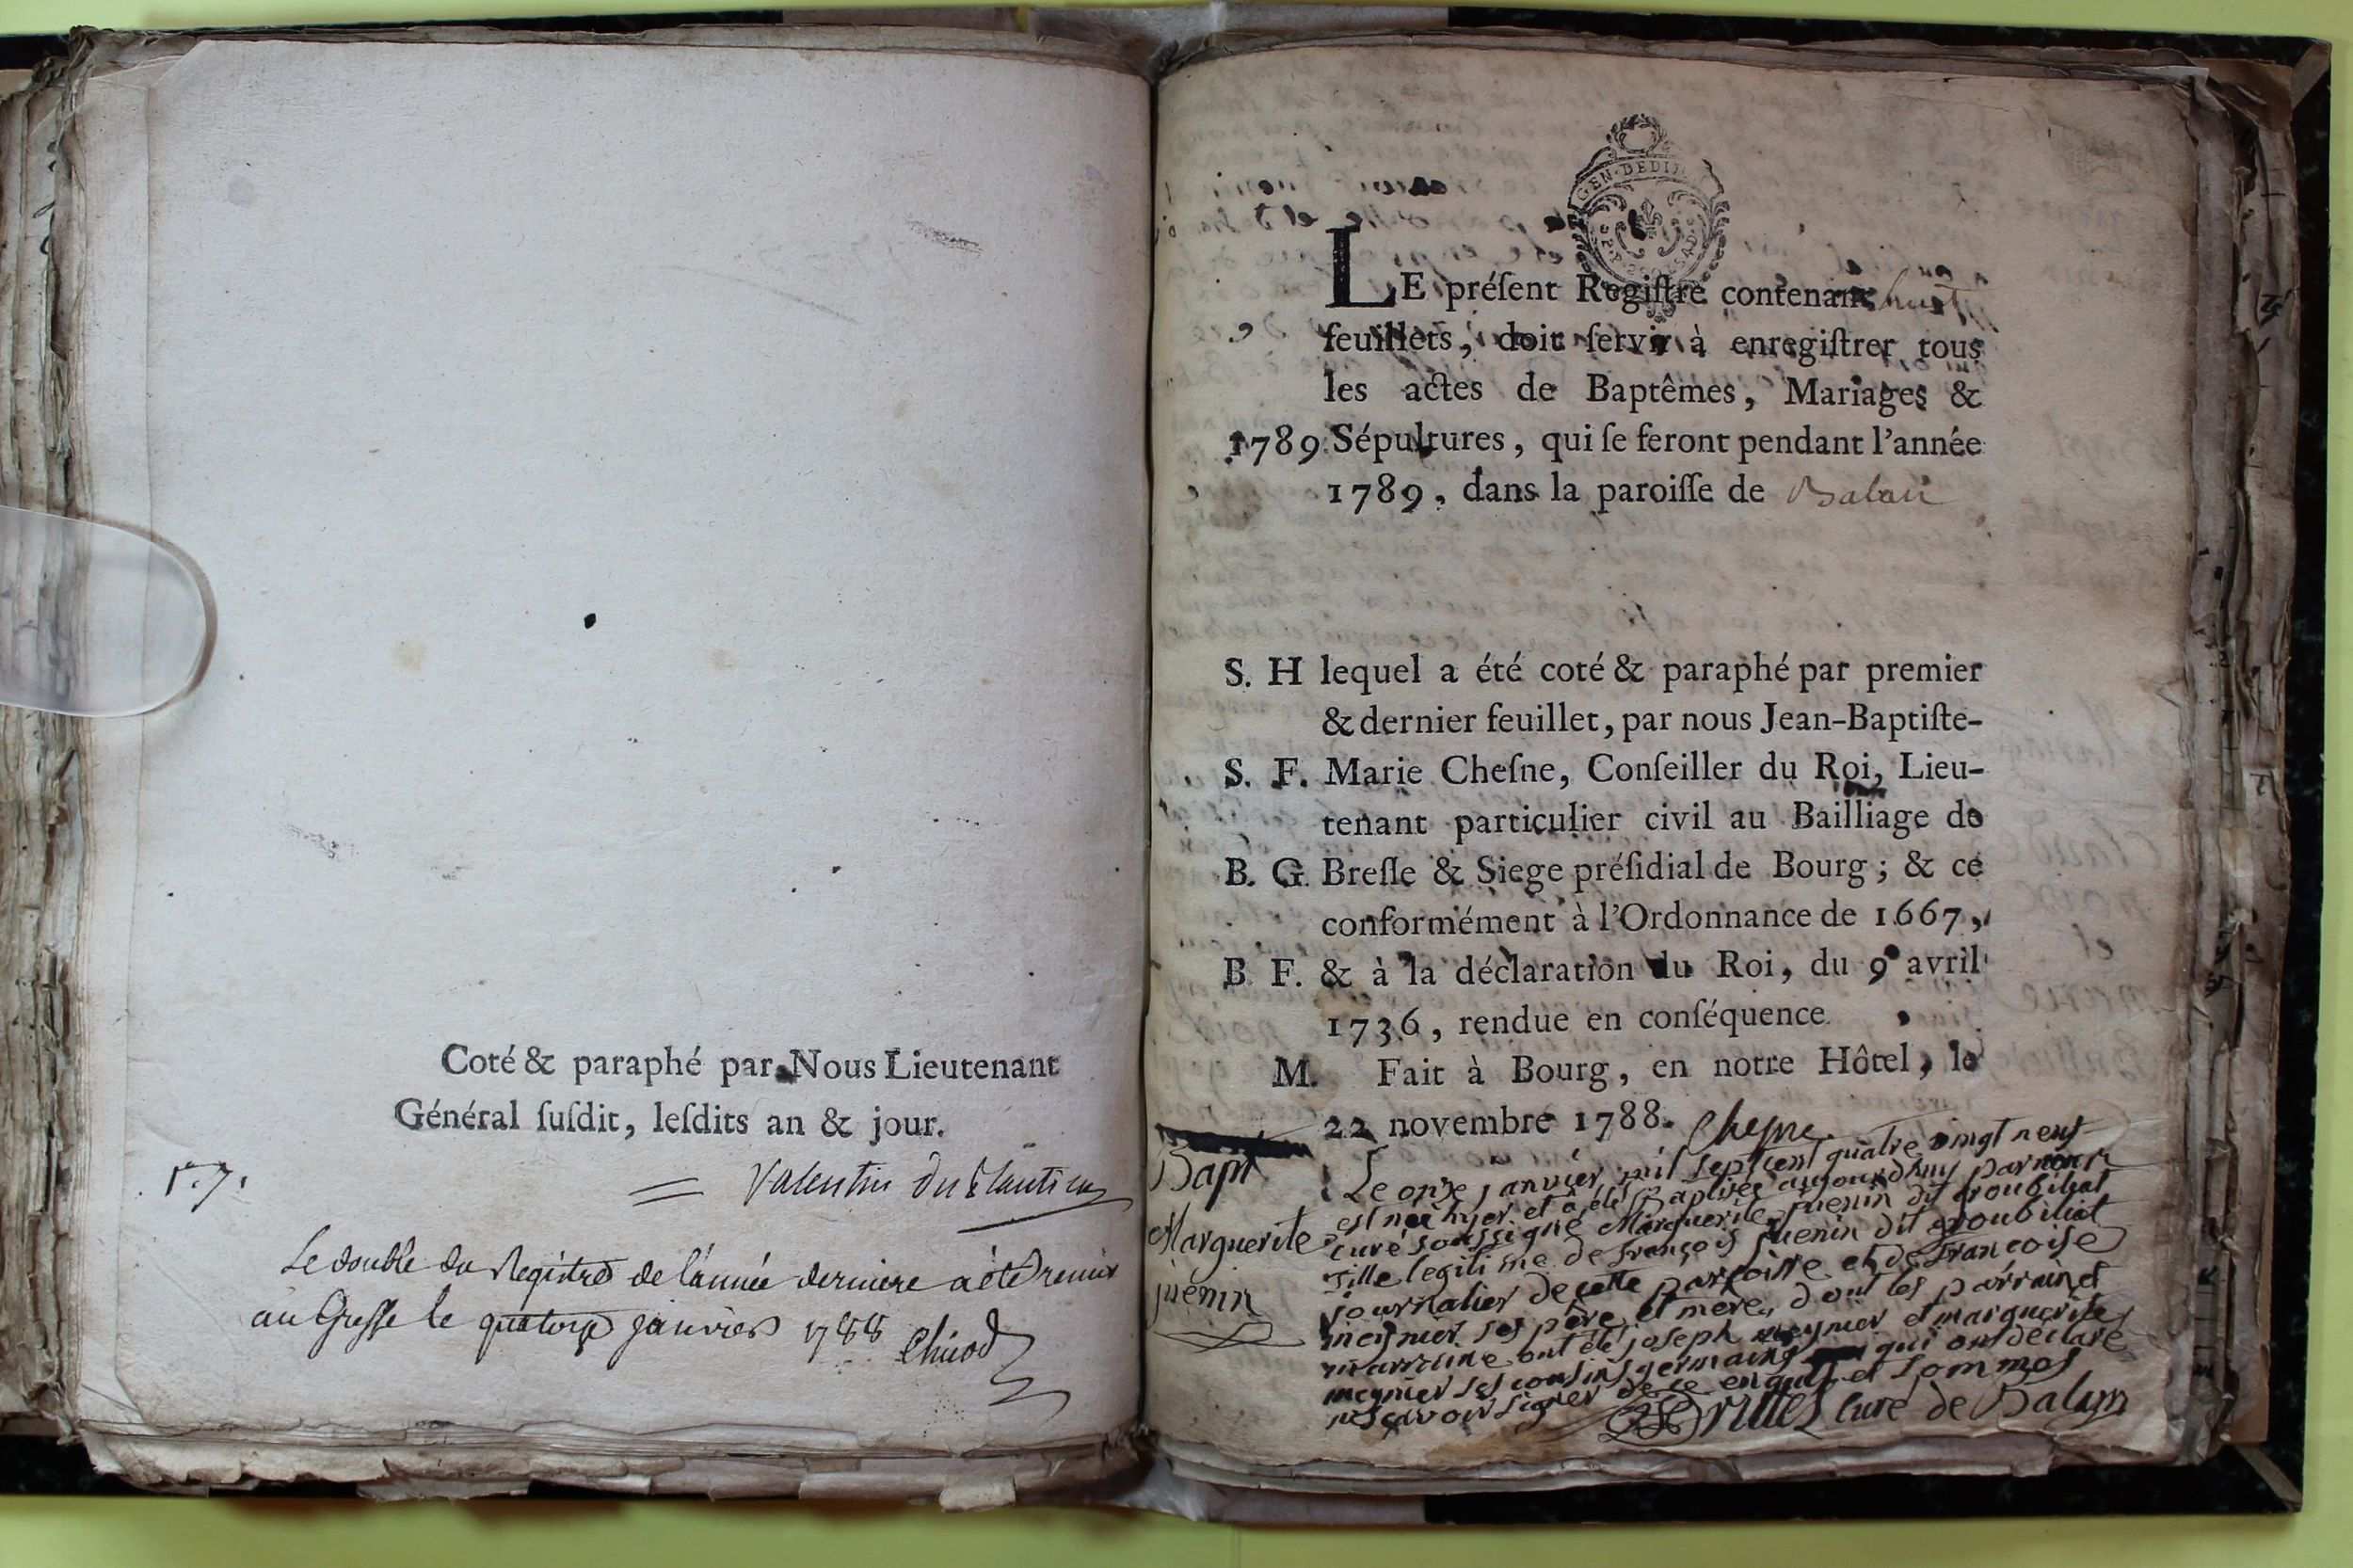 Coté & paraphé par Nous Lieutenant
Général ſuſdit, leſdits an & jour.
Valentin du
Le double du Registre de l'année derniere a été remis
au Greffe le quatorze janvier 1788 Chicod
GEN·DEDI
LE préſent Regiſtre contenant huit
feuillets, doit ſervir à enregiſtrer tous
les actes de Baptêmes, Mariages &
1789 Sépultures, qui ſe feront pendant l'année
1789, dans la paroiſſe de Balan
S. H lequel a été coté & paraphé par premier
& dernier feuillet, par nous Jean-Baptiſte-
S. F. Marie Cheſne, Conſeiller du Roi, Lieu-
tenant particulier civil au Bailliage de
B. G. Breſſe & Siege préſidial de Bourg; & ce
conformément à l'Ordonnance de 1667,
B. F. & à la déclaration du Roi, du 9 avril
1736, rendue en conſéquence.
M. Fait à Bourg, en notre Hôtel, le
22 novembre 1788. Chesne
Bapt
Marguerite
juenin
Le onze janvier mil sept cent quatre vingt neuf
est née hyer et a été Baptisée aujourdhuy par nous
curé soussigné Marguerite juenin dit troubiliat
fille legitime de françois juenin dit troubiliat
journalier de cette parroisse et de francoise
meynier ses père et mere, dont les parrain et
marraine ont été joseph meynier et marguerite
meynier ses cousins germains qui ont déclaré
ne sçavoir signer de ce enquis et sommés
curé de Balan